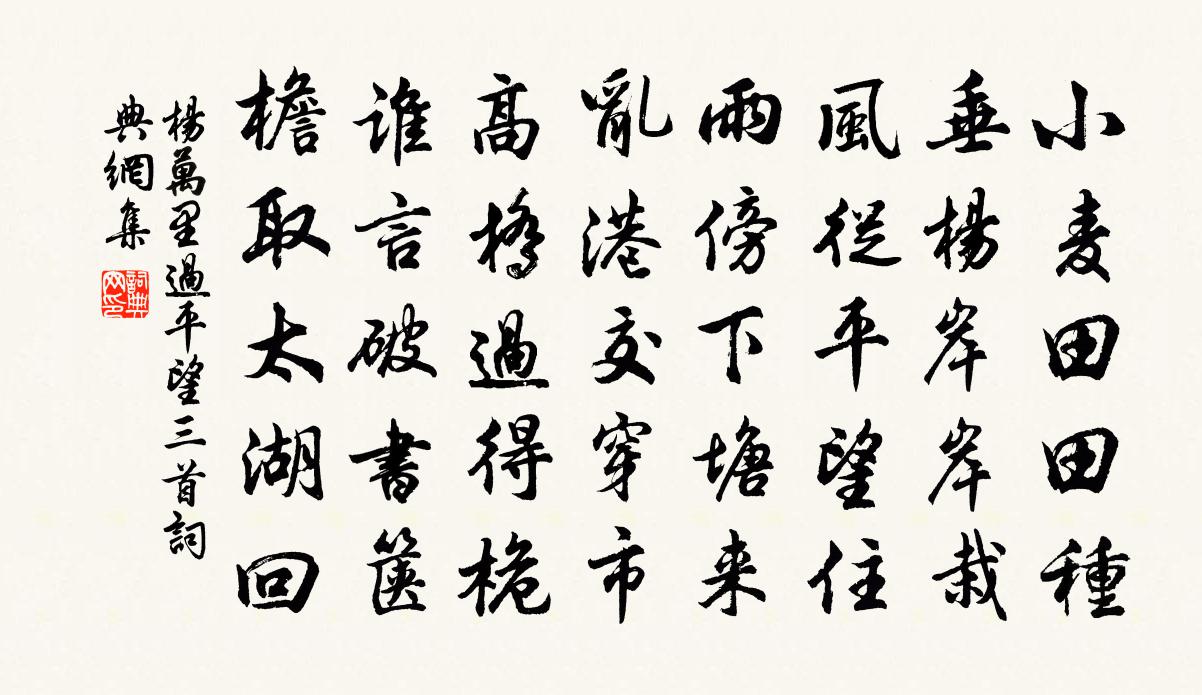 小麦田田種
垂楊岸岸栽
風從平望住
雨傍下塘来
亂港交穿市
高橋過得桅
誰言破書篋
檐取太湖回
楊萬里過平望三首詞
典網集
詞典网印